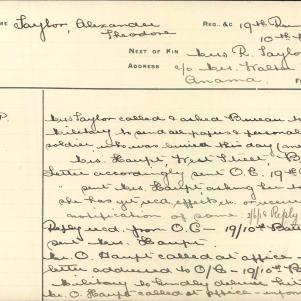 RE Taylor, Alexander REG. &C 19th
Theodore 10th
NEXT OF KIN Mrs R. Taylor
ADDRESS c/o Mrs. Walter
Anama.
Mrs Taylor called & asked Bureau
military to send all papers & personal
soldier, who was buried this day
Mrs. Haupt, West Street, B
Letter accordingly sent O.C. 19th
" sent Mrs. Haupt, asking her
she has yet recd. effects or
notification of same. 2/6/8 Reply
Reply recd. from O.C - 19/10th Batt
sent Mrs. Haupt.
Mr. O. Haupt called at office
letter addressed to O/C - 19/10th B
military to kindly deliver his
Mr. O. Haupt called at office - infor